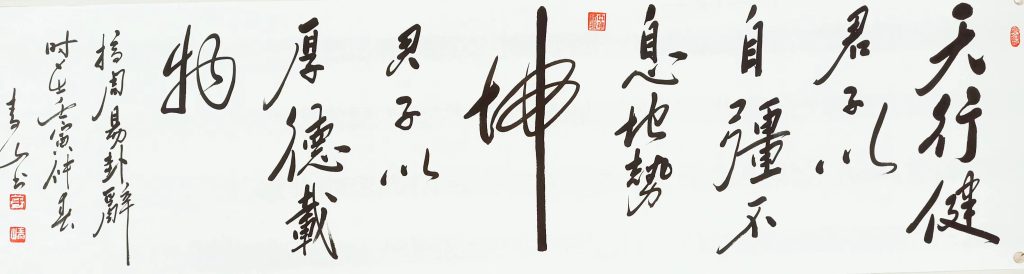 天行健
君子以
自彊不
息地勢
坤
君子以
厚德載
物
摘周易卦辭
时在壬寅仲春
青山书